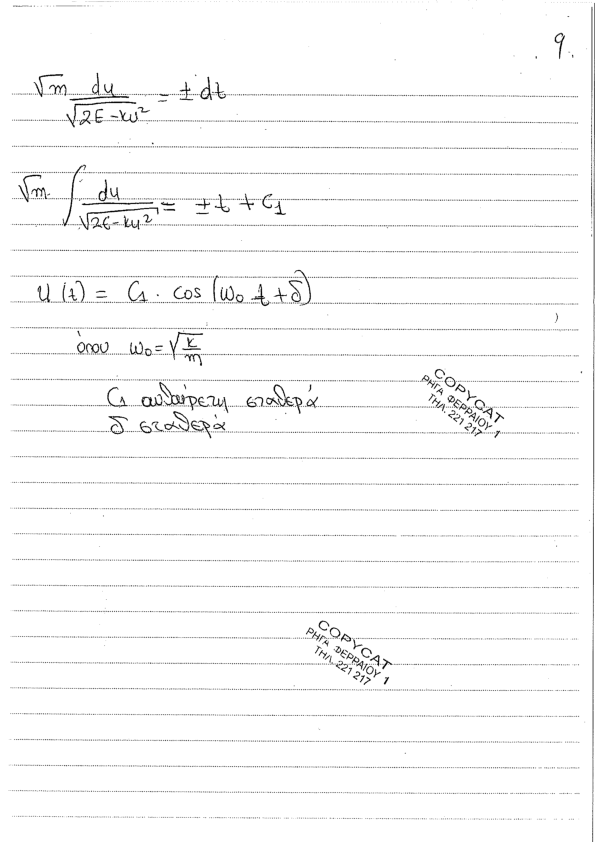 9.
√m du/√(2E-ku²) = ± dt
√m ∫ du/√(2E-ku²) = ±t + C₁
u(t) = C₁ · cos(ω₀ t + δ)
όπου ω₀ = √(k/m)
C₁ αυθαίρετη σταθερά
δ σταθερά
COPYCAT
ΡΗΓΑ ΦΕΡΡΑΙΟΥ 1
ΤΗΛ. 221 217
COPYCAT
ΡΗΓΑ ΦΕΡΡΑΙΟΥ 1
ΤΗΛ. 221 217